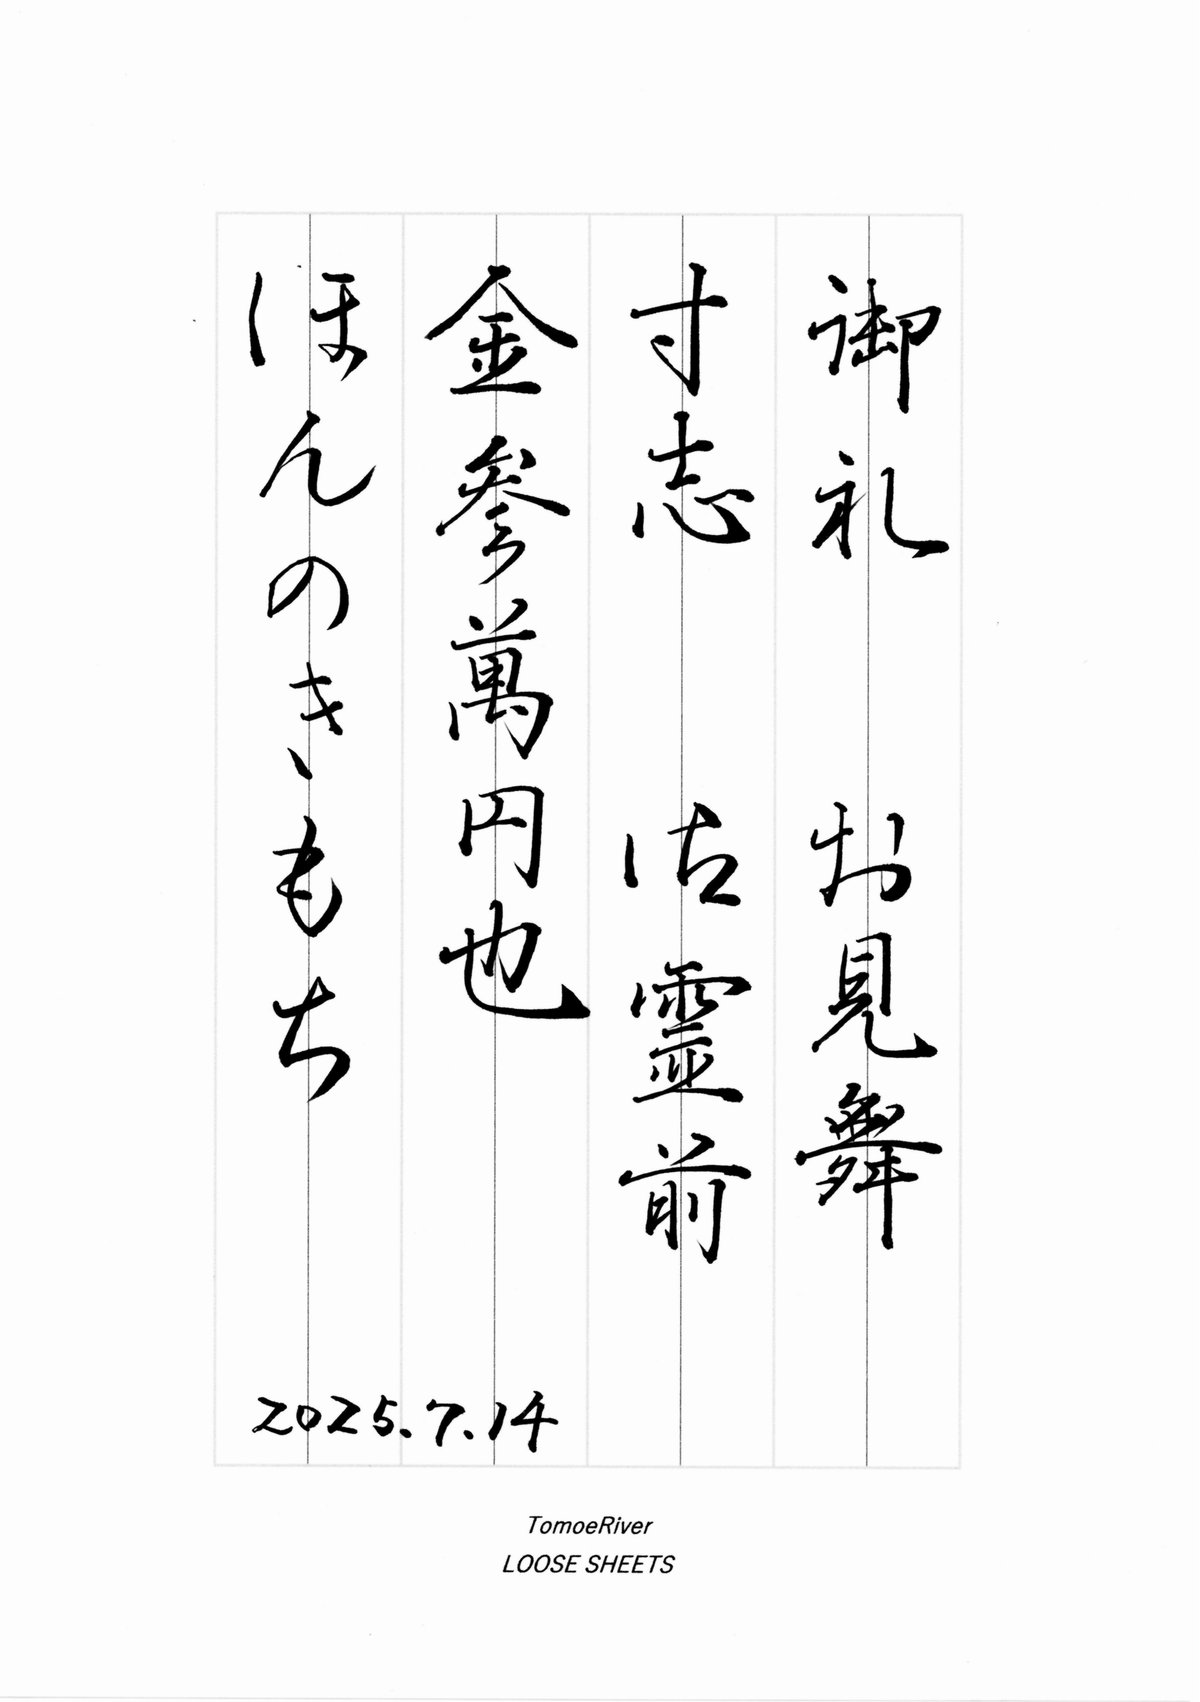 御礼　お見舞
寸志　御霊前
金参萬円也
ほんのきもち
2025.7.14
TomoeRiver
LOOSE SHEETS